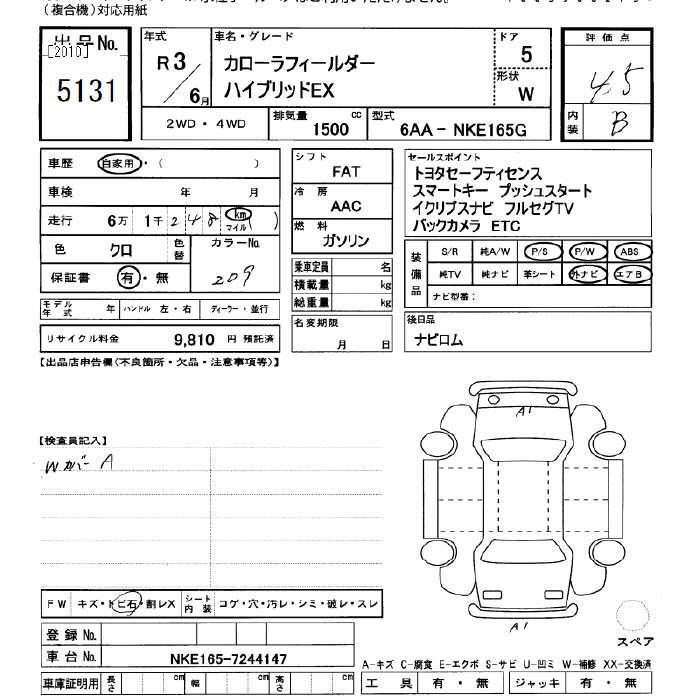 (複合機)対応用紙
出品No.
[2010]
5131
年式
R3/6月
車名・グレード
カローラフィールダー
ハイブリッドEX
ドア
5
形状
W
評価点
4.5
内装
B
2WD・4WD
排気量
1500 cc
型式
6AA-NKE165G
車歴 自家用・( )
車検 年 月
走行 6万 1千 2 4 8 km マイル ( )
色 クロ 色替 カラーNo.
保証書 有・無 209
モデル年式 年 ハンドル 左・右 ディーラー・並行
リサイクル料金 9,810 円 預託済
シフト
FAT
冷房
AAC
燃料
ガソリン
乗車定員 名
積載量 kg
総重量 kg
名変期限
月 日
セールスポイント
トヨタセーフティセンス
スマートキー プッシュスタート
イクリプスナビ フルセグTV
バックカメラ ETC
装備品
S/R 純A/W P/S P/W ABS
純TV 純ナビ 革シート 外ナビ エアB
ナビ型番:
後日品
ナビロム
【出品店申告欄(不良箇所・欠品・注意事項等)】
【検査員記入】
Wカバー A
A1
A1
FW キズ・トビ石・割レX シート内装 コゲ・穴・汚レ・シミ・破レ・スレ
登録No.
車台No. NKE165-7244147
車庫証明用 長さ cm 幅 cm 高さ cm
スペア
A-キズ C-腐食 E-エクボ S-サビ U-凹ミ W-補修 XX-交換済
工具 有・無 ジャッキ 有・無